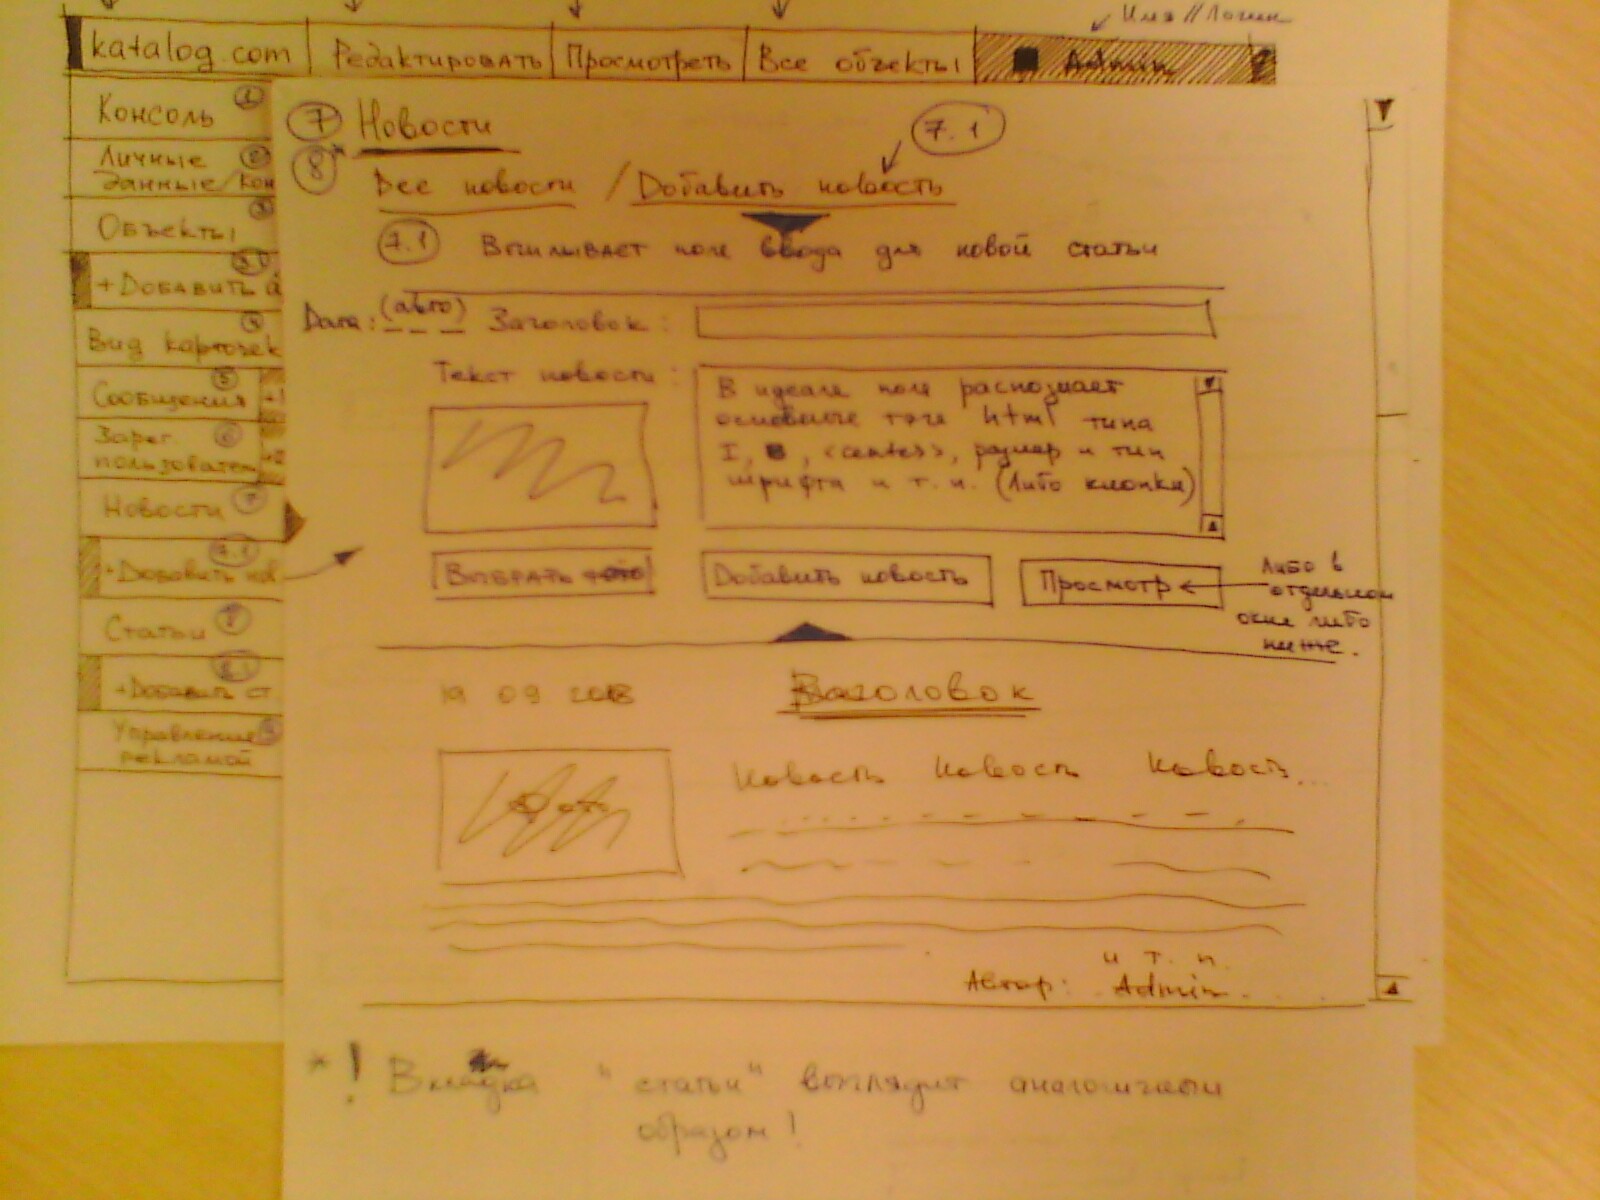 Имя // Логин
katalog.com Редактировать Просмотреть Все объекты Admin
Консоль 1
Личные 2
данные/кон
Объекты 3
+ Добавить
Вид карточек 4
Сообщения 5
+1
Зарег. 6
пользовател
Новости 7
7.1
+Добавить нов
Статьи 8
8.1
+Добавить ст
Управление 9
рекламой
7 Новости
7.1
8*
Все новости / Добавить новость
7.1 Всплывает поле ввода для новой статьи
Дата: (авто) Заголовок:
Текст новости:
В идеале поле распознает
основные тэги html типа
I, B, <center>, размер и тип
шрифта и т.п. (либо кнопки)
Выбрать фото
Добавить новость
Просмотр
либо в
отдельном
окне либо
ниже.
19 09 2008 Заголовок
Фото
Новость Новость Новость...
и т. п.
Автор: Admin
* ! Вкладка "статьи" выглядит аналогичным
образом!